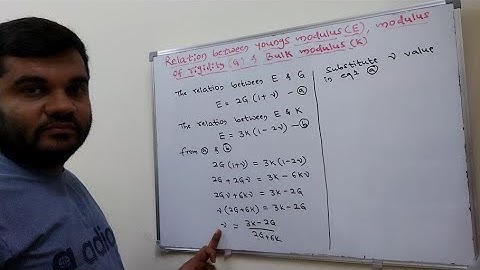 Relation between youngs modulus (E), modulus
of rigidity (G) & Bulk modulus (K)
The relation between E & G
E = 2G (1+ν) – ⓐ
The relation between E & K
E = 3K (1-2ν) – ⓑ
from ⓐ & ⓑ
2G (1+ν) = 3K (1-2ν)
2G + 2Gν = 3K - 6Kν
2Gν + 6Kν = 3K - 2G
ν (2G+6K) = 3K - 2G
ν = 3K-2G
2G+6K
substitute ν value
in eqn ⓐ
adidas